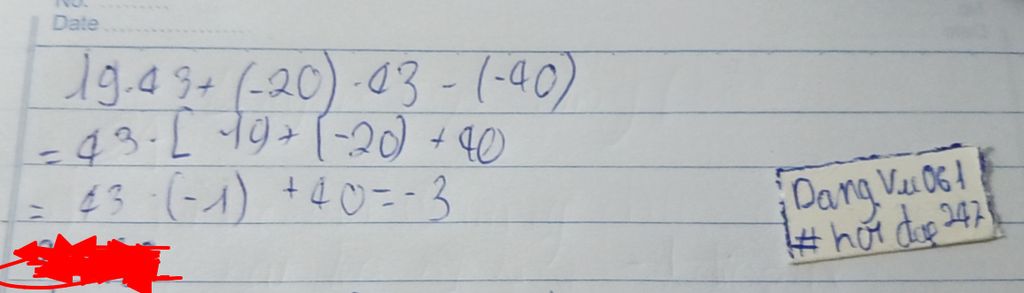 No.
Date
19.43+(-20).43-(-40)
=43.[ 19+(-20) +40
= 43 .(-1) +40=-3
Dang Vu061
# hoi dap 247